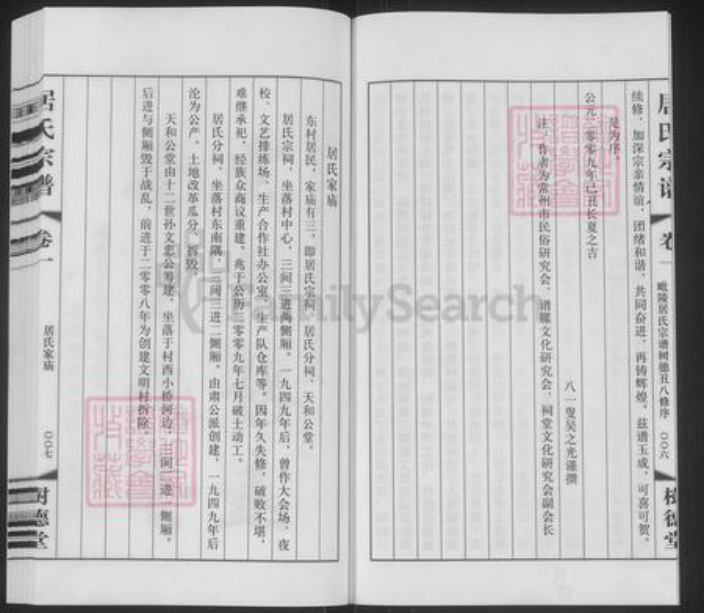 居氏宗谱
卷一
毗陵居氏宗谱树德丑八修序
〇〇六
树德堂
续修，加深宗亲情谊，团绪和谐，共同奋进，再铸辉煌。兹谱玉成，可喜可贺。
是为序。
公元二零零九年己丑长夏之吉
八一叟吴之光谨撰
注：作者为常州市民俗研究会、谱牒文化研究会、祠堂文化研究会副会长
居氏家庙
东村居民，家庙有三，即居氏宗祠、居氏分祠、天和公堂。
居氏宗祠，坐落村中心，三间三进两侧厢。一九四九年后，曾作大会场、夜
校、文艺排练场、生产合作社办公室、生产队仓库等。因年久失修，破败不堪，
难继承祀，经族众商议重建，兆于公历二零零九年七月破土动工。
居氏分祠，坐落村东南隅，三间三进二侧厢。由肃公派创建，一九四九年后
沦为公产，土地改革瓜分、拆毁。
天和公堂由十二世孙文忠公筹建，坐落于村西小桥河边，三间二进一侧厢。
后进与侧厢毁于战乱，前进于二零零八年为创建文明村拆除。
居氏宗谱
卷一
居氏家庙
〇〇七
树德堂
FamilySearch